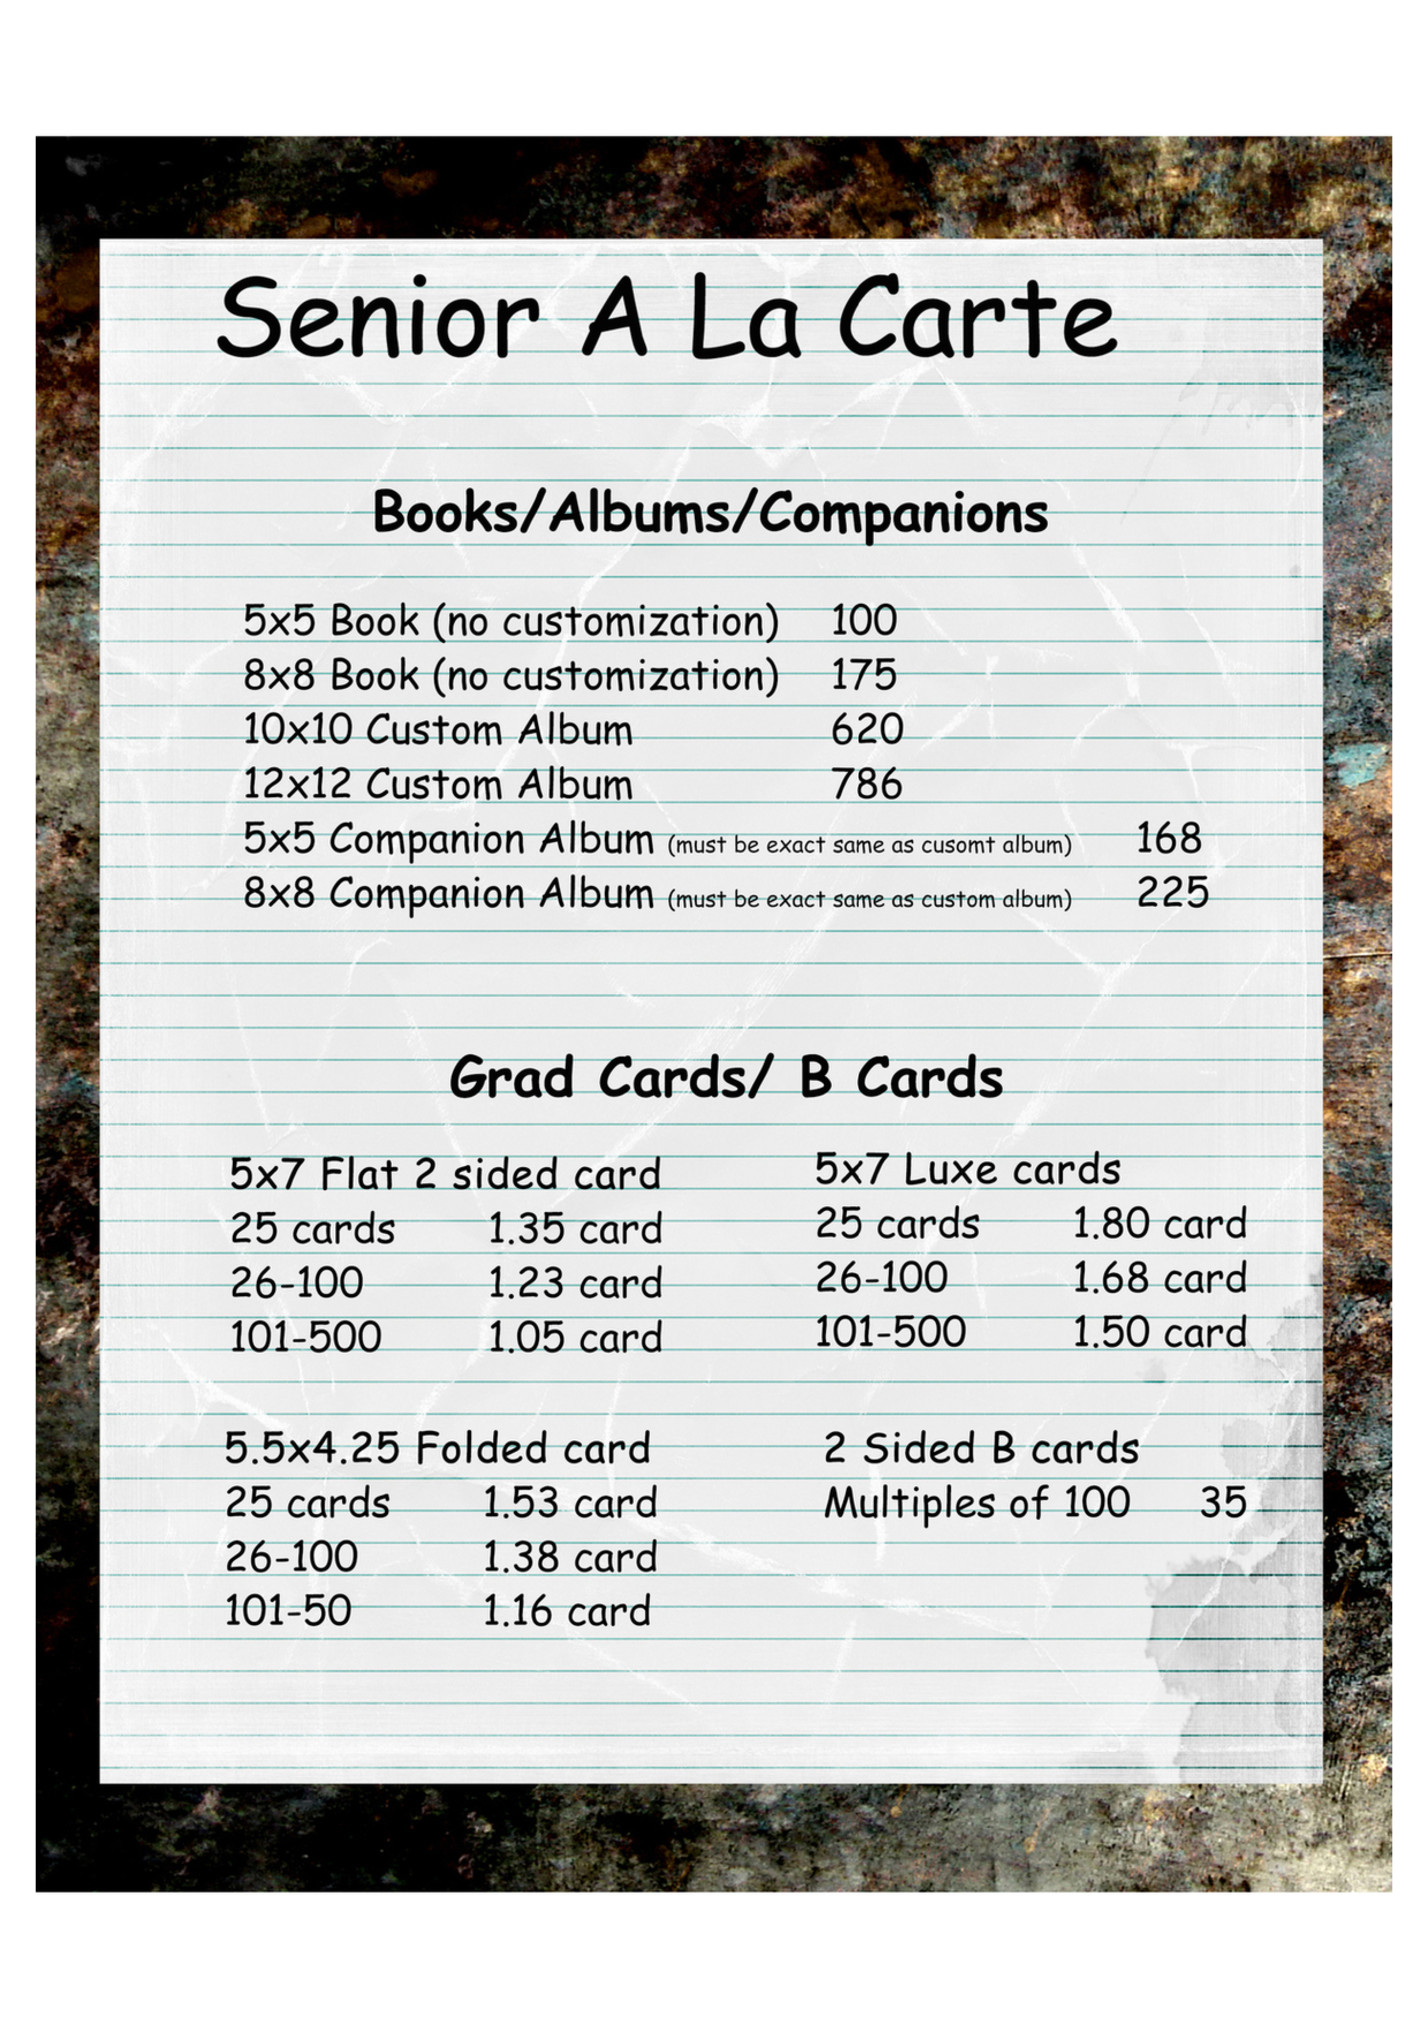 Senior A La Carte
Books/Albums/Companions
5x5 Book (no customization) 100
8x8 Book (no customization) 175
10x10 Custom Album 620
12x12 Custom Album 786
5x5 Companion Album (must be exact same as cusomt album) 168
8x8 Companion Album (must be exact same as custom album) 225
Grad Cards/ B Cards
5x7 Flat 2 sided card
25 cards 1.35 card
26-100 1.23 card
101-500 1.05 card
5x7 Luxe cards
25 cards 1.80 card
26-100 1.68 card
101-500 1.50 card
5.5x4.25 Folded card
25 cards 1.53 card
26-100 1.38 card
101-50 1.16 card
2 Sided B cards
Multiples of 100 35